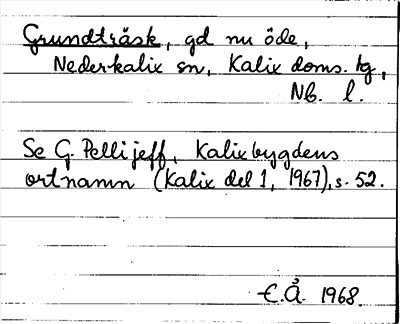 Grundträsk, gd nu öde,
Nederkalix sn, Kalix doms. tg,
Nb. l.
Se G. Pellijeff, Kalixbygdens
ortnamn (Kalix del 1, 1967), s. 52.
E.Å. 1968.